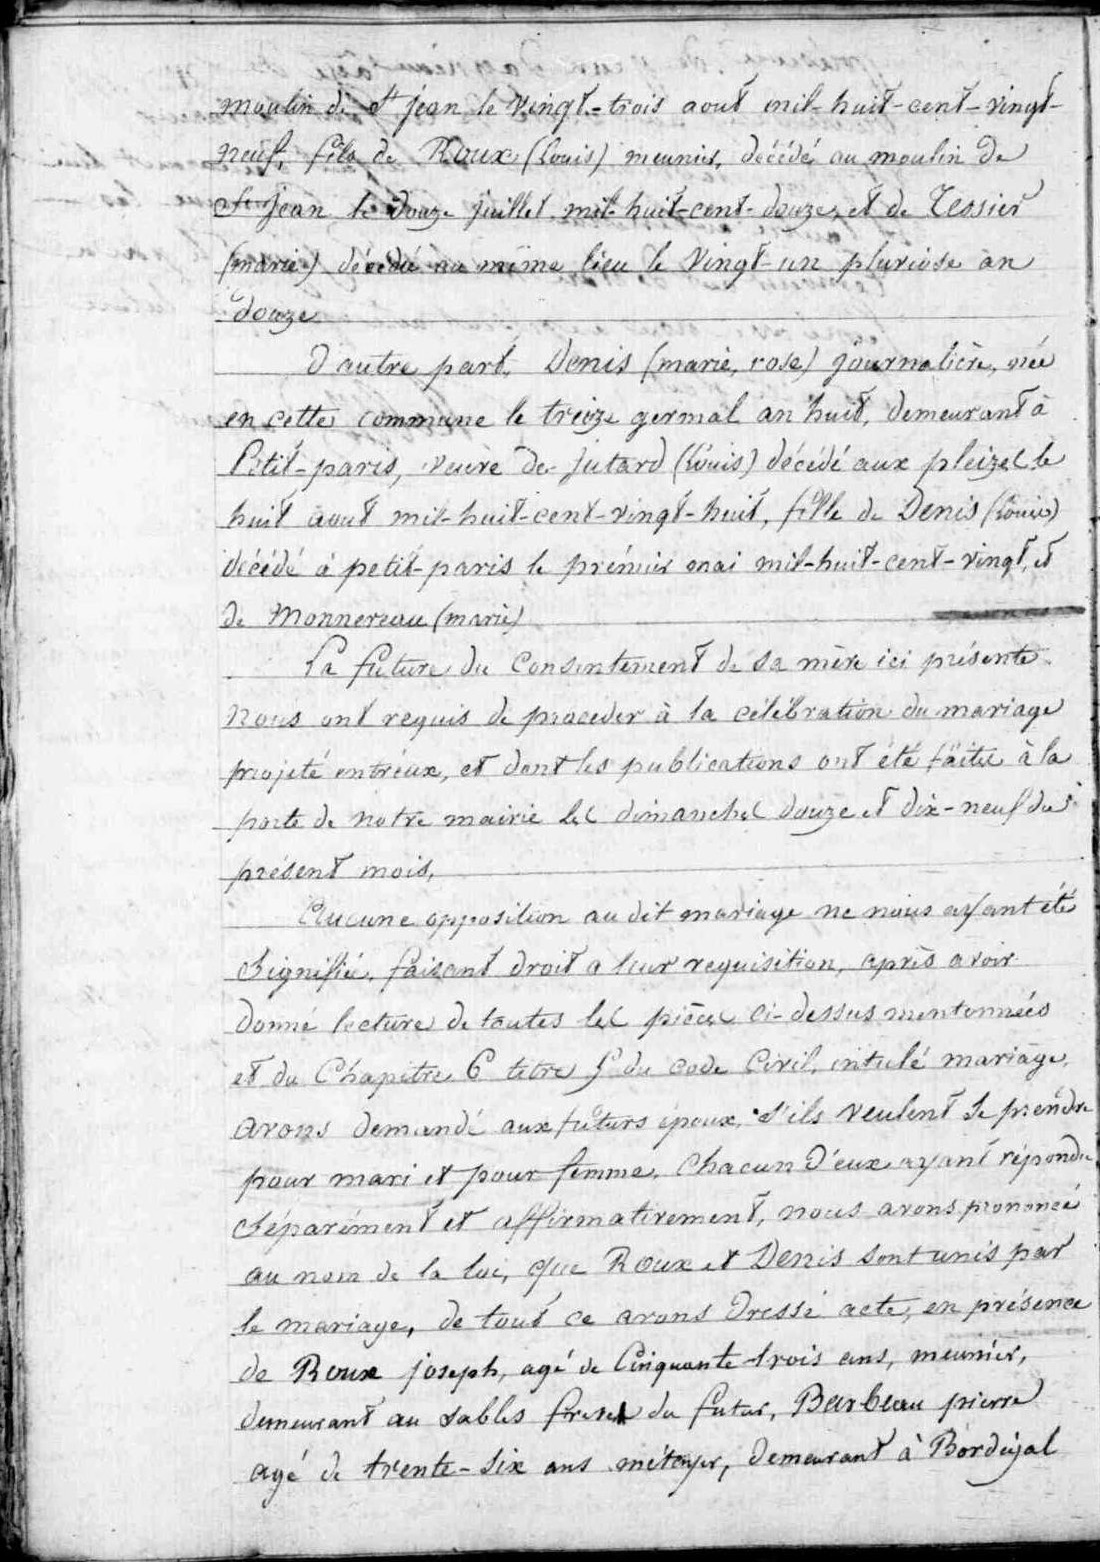 moulin de St jean le vingt-trois aout mil-huit-cent-vingt-
neuf, fils de Roux (Louis) meunier, décédé au moulin de
St jean le douze juillet mil-huit-cent-douze, et de Tessier
(marie) décédée au même lieu le vingt-un pluviose an
douze
D'autre part, Denis (marie, rose) journalière, née
en cette commune le treize germal an huit, demeurant à
Petit-paris, veuve de jutard (Louis) décédé aux pleizes le
huit aout mil-huit-cent-vingt-huit, fille de Denis (Louis)
décédé à petit-paris le prémier mai mil-huit-cent-vingt, et
de Monnereau (marie)
La future du consentement de sa mère ici présente
Nous ont requis de proceder à la célébration du mariage
projeté entréux, et dont les publications ont été faites à la
porte de notre mairie les dimanches douze et dix-neuf du
présent mois,
Aucune opposition au dit mariage ne nous ayant été
signifiée, faisant droit a leur requisition, après avoir
donné lecture de toutes les pièces ci-dessus mentonnées
et du Chapitre 6 titre 5 du code Civil, intulé mariage,
avons demandé aux futurs époux, s'ils veulent se prendre
pour mari et pour femme. Chacun d'eux ayant répondu
séparément et affirmativement, nous avons prononcé
au nom de la loi, que Roux et Denis sont unis par
le mariage, de tout ce avons dressé acte, en présence
de Roux joseph, agé de Cinquante-trois ans, meunier,
demeurant au sables frere du futur, Barbeau pierre
agé de trente-six ans métayer, demeurant à Bordegal